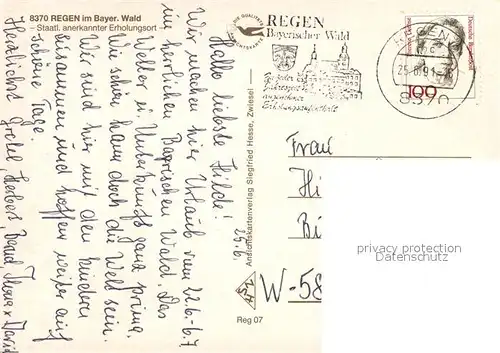 8370 REGEN im Bayer. Wald
– Staatl. anerkannter Erholungsort –
Hallo liebste Hilde!
25.6.
Wir machen hier Urlaub vom 22.6.-6.7.
im herrlichen Bayrischen Wald. Das
Wetter u. Unterkunft ganz prima.
Wie schön kann doch die Welt sein.
Wir sind hier mit den Kindern
zusammen und hoffen weiter auf
schöne Tage.
Herzlichst Gretel, Herbert, Bernd, u. David
Ansichtskartenverlag Siegfried Hesse, Zwiesel
Reg 07
REGEN
Bayerischer Wald
Zu jeder
Jahreszeit
angenehmer
Erholungsaufenthalt
REGEN
25.6.91
8370
Deutsche Bundespost
100
Frau
Hi
Bi
W-58
privacy protection
Datenschutz